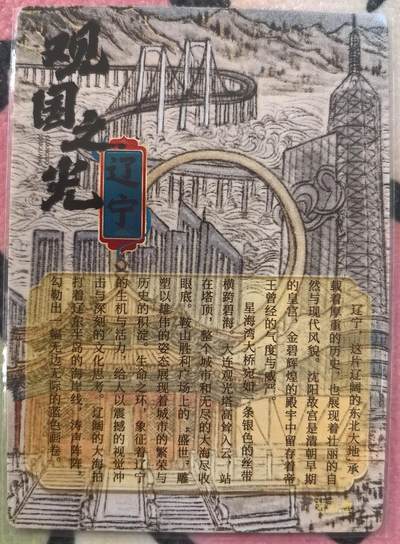 观国之光
辽宁
辽宁，这片辽阔的东北大地，承
载着厚重的历史，也展现着壮丽的自
然与现代风貌。沈阳故宫是清朝早期
的皇宫，金碧辉煌的殿宇中留存着帝
王曾经的气度与威严。
星海湾大桥宛如一条银色的丝带
横跨碧海，大连观光塔高耸入云，站
在塔顶，整个城市和无尽的大海尽收
眼底。鞍山胜利广场上的“盛世”雕
塑以雄伟的姿态展现着城市的繁荣与
历史的积淀。生命之环，象征着辽宁
的生机与活力，给人以震撼的视觉冲
击与深刻的文化思考。辽阔的大海拍
打着辽东半岛的海岸线，涛声阵阵，
勾勒出一幅无边无际的蓝色画卷。